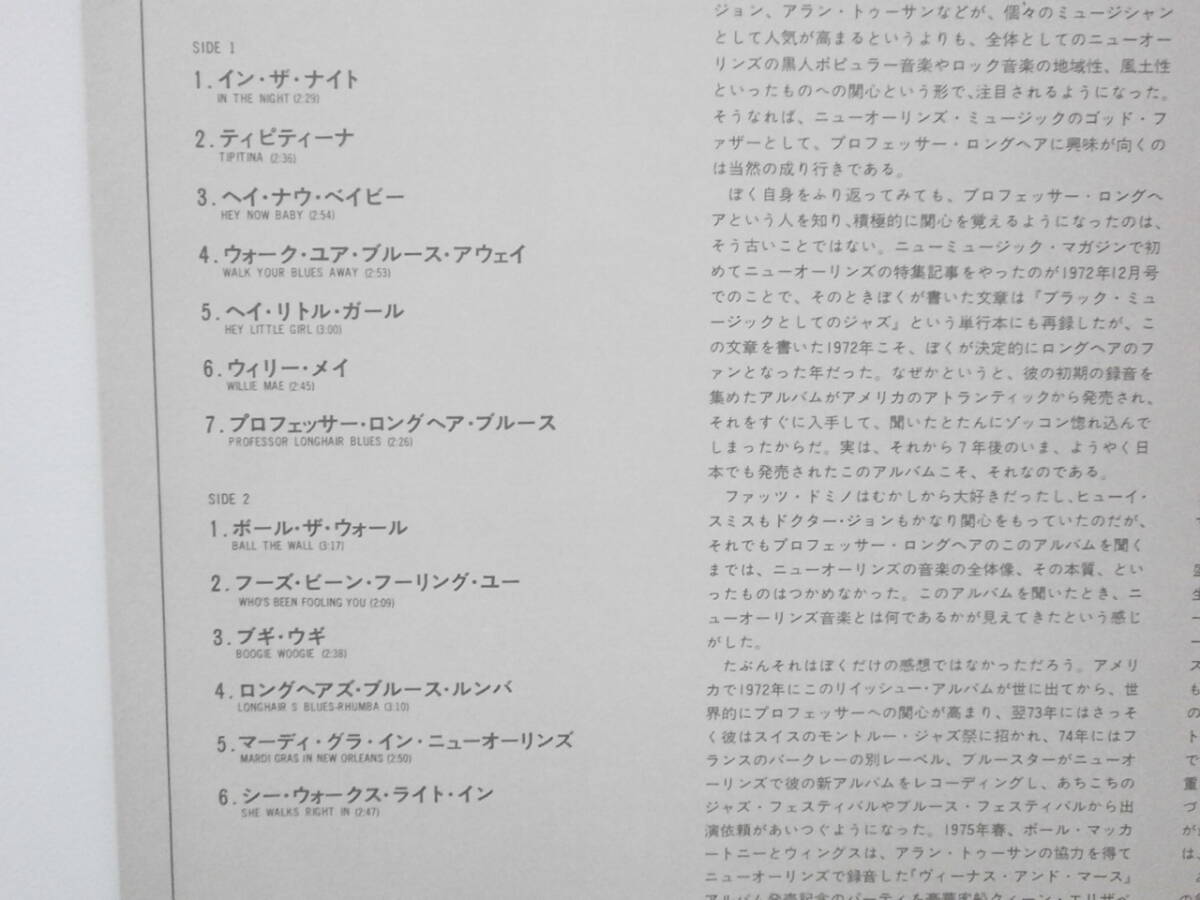 SIDE 1
1.イン・ザ・ナイト
IN THE NIGHT (2:29)
2.ティピティーナ
TIPITINA (2:36)
3.ヘイ・ナウ・ベイビー
HEY NOW BABY (2:54)
4.ウォーク・ユア・ブルース・アウェイ
WALK YOUR BLUES AWAY (2:53)
5.ヘイ・リトル・ガール
HEY LITTLE GIRL (3:00)
6.ウィリー・メイ
WILLIE MAE (2:45)
7.プロフェッサー・ロングヘア・ブルース
PROFESSOR LONGHAIR BLUES (2:26)
SIDE 2
1.ボール・ザ・ウォール
BALL THE WALL (3:17)
2.フーズ・ビーン・フーリング・ユー
WHO'S BEEN FOOLING YOU (2:09)
3.ブギ・ウギ
BOOGIE WOOGIE (2:38)
4.ロングヘアズ・ブルース・ルンバ
LONGHAIR S BLUES-RHUMBA (3:10)
5.マーディ・グラ・イン・ニューオーリンズ
MARDI GRAS IN NEW ORLEANS (2:50)
6.シー・ウォークス・ライト・イン
SHE WALKS RIGHT IN (2:47)
ジョン、アラン・トゥーサンなどが、個々のミュージシャン
として人気が高まるというよりも、全体としてのニューオー
リンズの黒人ポピュラー音楽やロック音楽の地域性、風土性
といったものへの関心という形で、注目されるようになった。
そうなれば、ニューオーリンズ・ミュージックのゴッド・フ
ァザーとして、プロフェッサー・ロングヘアに興味が向くの
は当然の成り行きである。
ぼく自身をふり返ってみても、プロフェッサー・ロングヘ
アという人を知り、積極的に関心を覚えるようになったのは、
そう古いことではない。ニューミュージック・マガジンで初
めてニューオーリンズの特集記事をやったのが1972年12月号
でのことで、そのときぼくが書いた文章は『ブラック・ミュ
ージックとしてのジャズ』という単行本にも再録したが、こ
の文章を書いた1972年こそ、ぼくが決定的にロングヘアのフ
ァンとなった年だった。なぜかというと、彼の初期の録音を
集めたアルバムがアメリカのアトランティックから発売され、
それをすぐに入手して、聞いたとたんにゾッコン惚れ込んで
しまったからだ。実は、それから7年後のいま、ようやく日
本でも発売されたこのアルバムこそ、それなのである。
ファッツ・ドミノはむかしから大好きだったし、ヒューイ・
スミスもドクター・ジョンもかなり関心をもっていたのだが、
それでもプロフェッサー・ロングヘアのこのアルバムを聞く
までは、ニューオーリンズの音楽の全体像、その本質、とい
ったものはつかめなかった。このアルバムを聞いたとき、ニ
ューオーリンズ音楽とは何であるかが見えてきたという感じ
がした。
たぶんそれはぼくだけの感想ではなかっただろう。アメリ
カで1972年にこのリイッシュー・アルバムが世に出てから、世
界的にプロフェッサーへの関心が高まり、翌73年にはさっそ
く彼はスイスのモントルー・ジャズ祭に招かれ、74年にはフ
ランスのバークレーの別レーベル、ブルースターがニューオ
ーリンズで彼の新アルバムをレコーディングし、あちこちの
ジャズ・フェスティバルやブルース・フェスティバルから出
演依頼があいつぐようになった。1975年春、ポール・マッカ
ートニーとウィングスは、アラン・トゥーサンの協力を得て
ニューオーリンズで録音した『ヴィーナス・アンド・マース』
アルバム発売記念のパーティを豪華客船クィーン・エリザベ
生
ー
ー
ス
も
の
ト
で
重
づ
が
は、